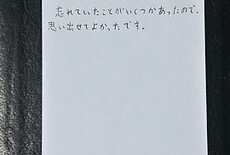 忘れていたことがいくつかあったので、
思い出せてよかったです。